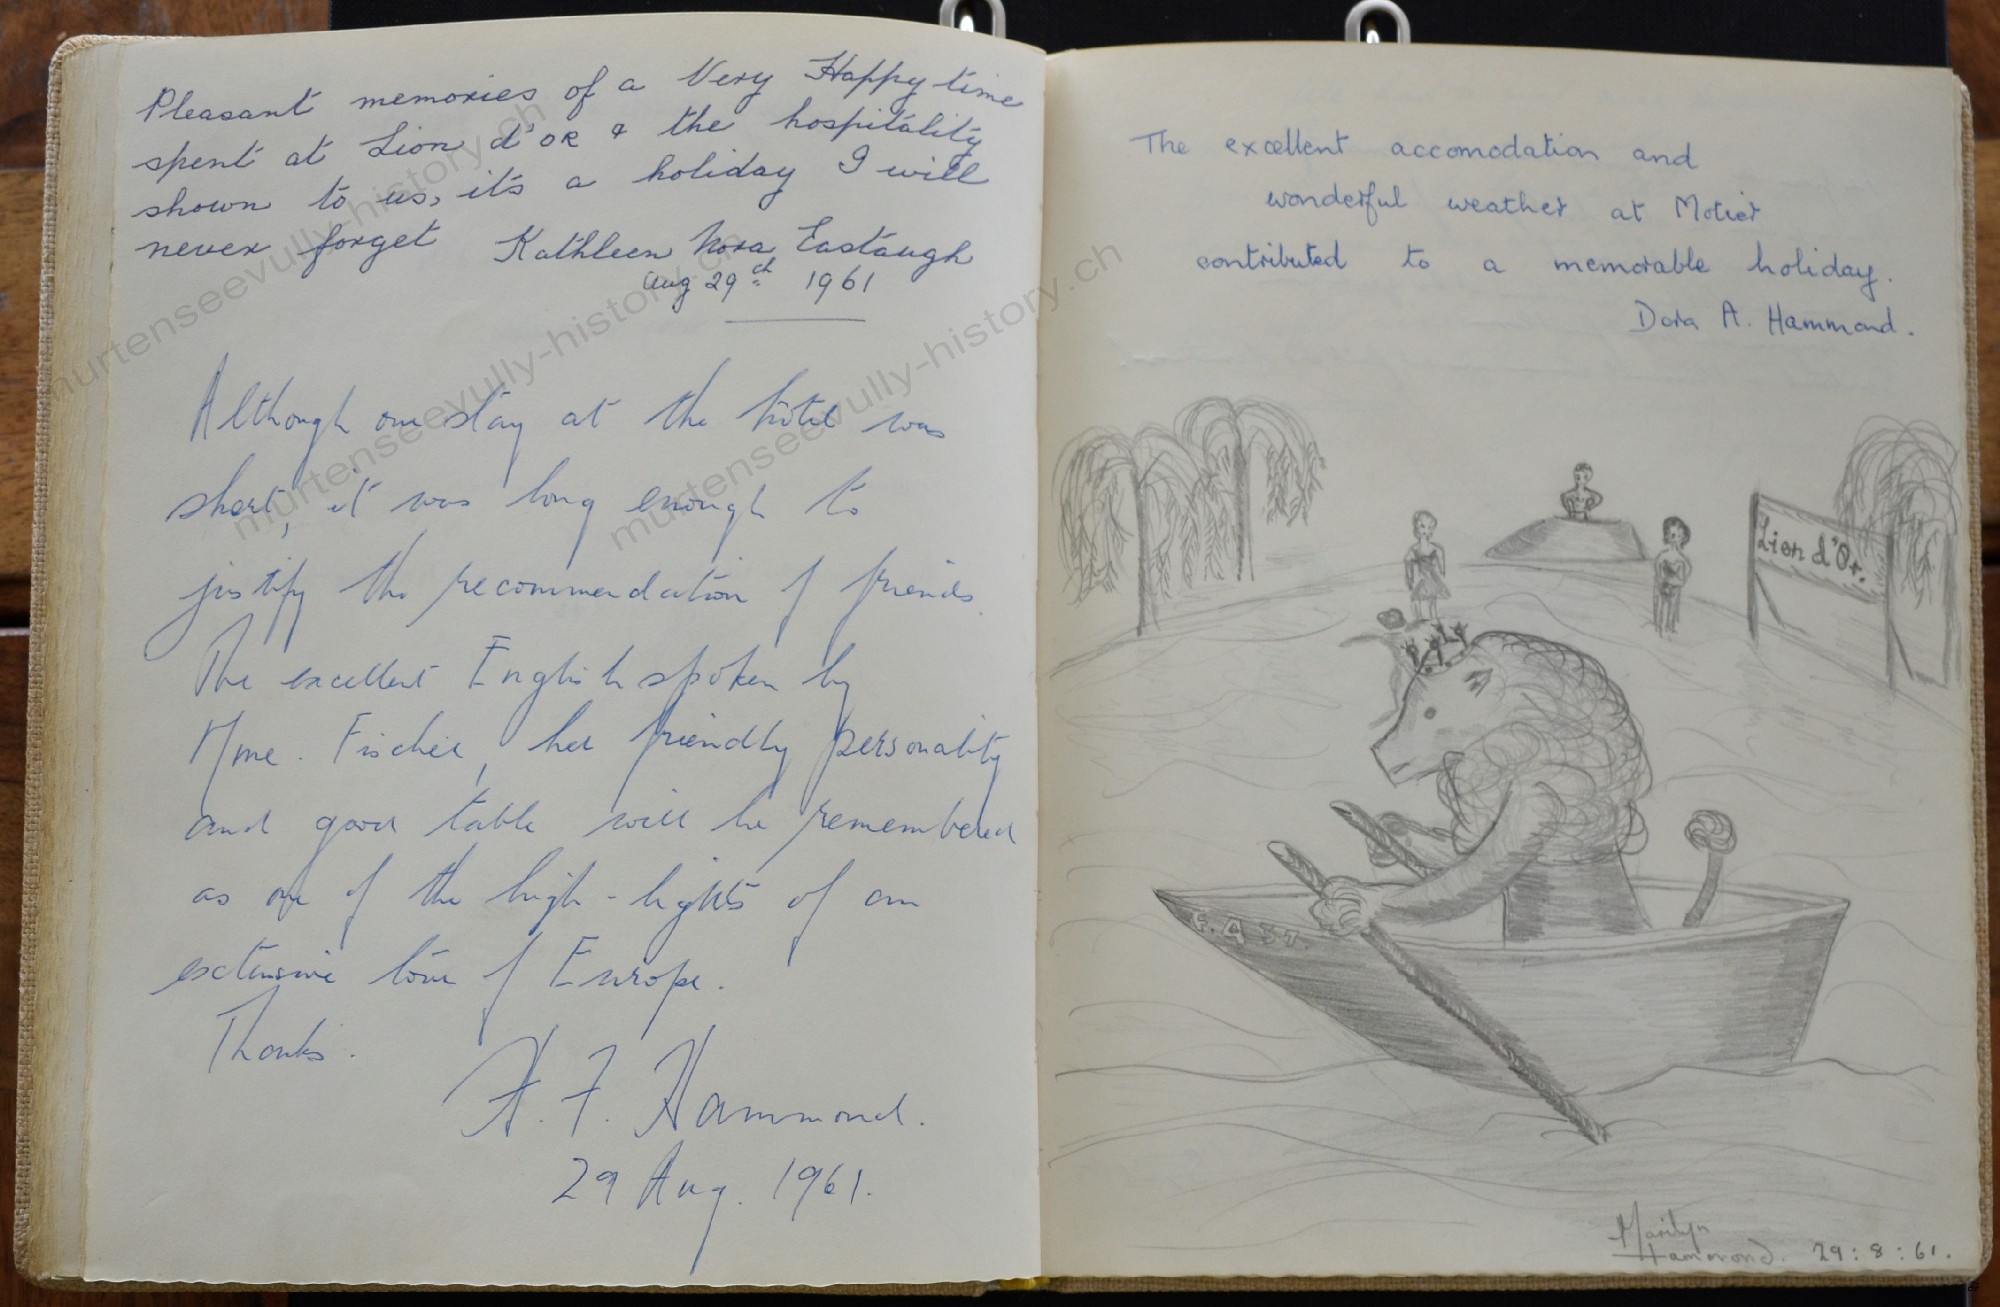 Pleasant memories of a Very Happy time
spent at Lion d'OR & the hospitality
shown to us, it's a holiday I will
never forget Kathleen Nora Eastaugh
Aug 29th 1961
Although our stay at the hôtel was
short, it was long enough to
justify the recommendation of friends.
The excellent English spoken by
Mme. Fischer, her friendly personality
and good table will be remembered
as one of the high-lights of an
extensive tour of Europe.
Thanks.
F. Hammond.
29 Aug. 1961.
The excellent accomodation and
wonderful weather at Motier
contributed to a memorable holiday.
Dora A. Hammond.
Lion d'Or.
Marilyn
Hammond. 29:8:61.
murtenseevully-history.ch
murtenseevully-history.ch
murtenseevully-history.ch